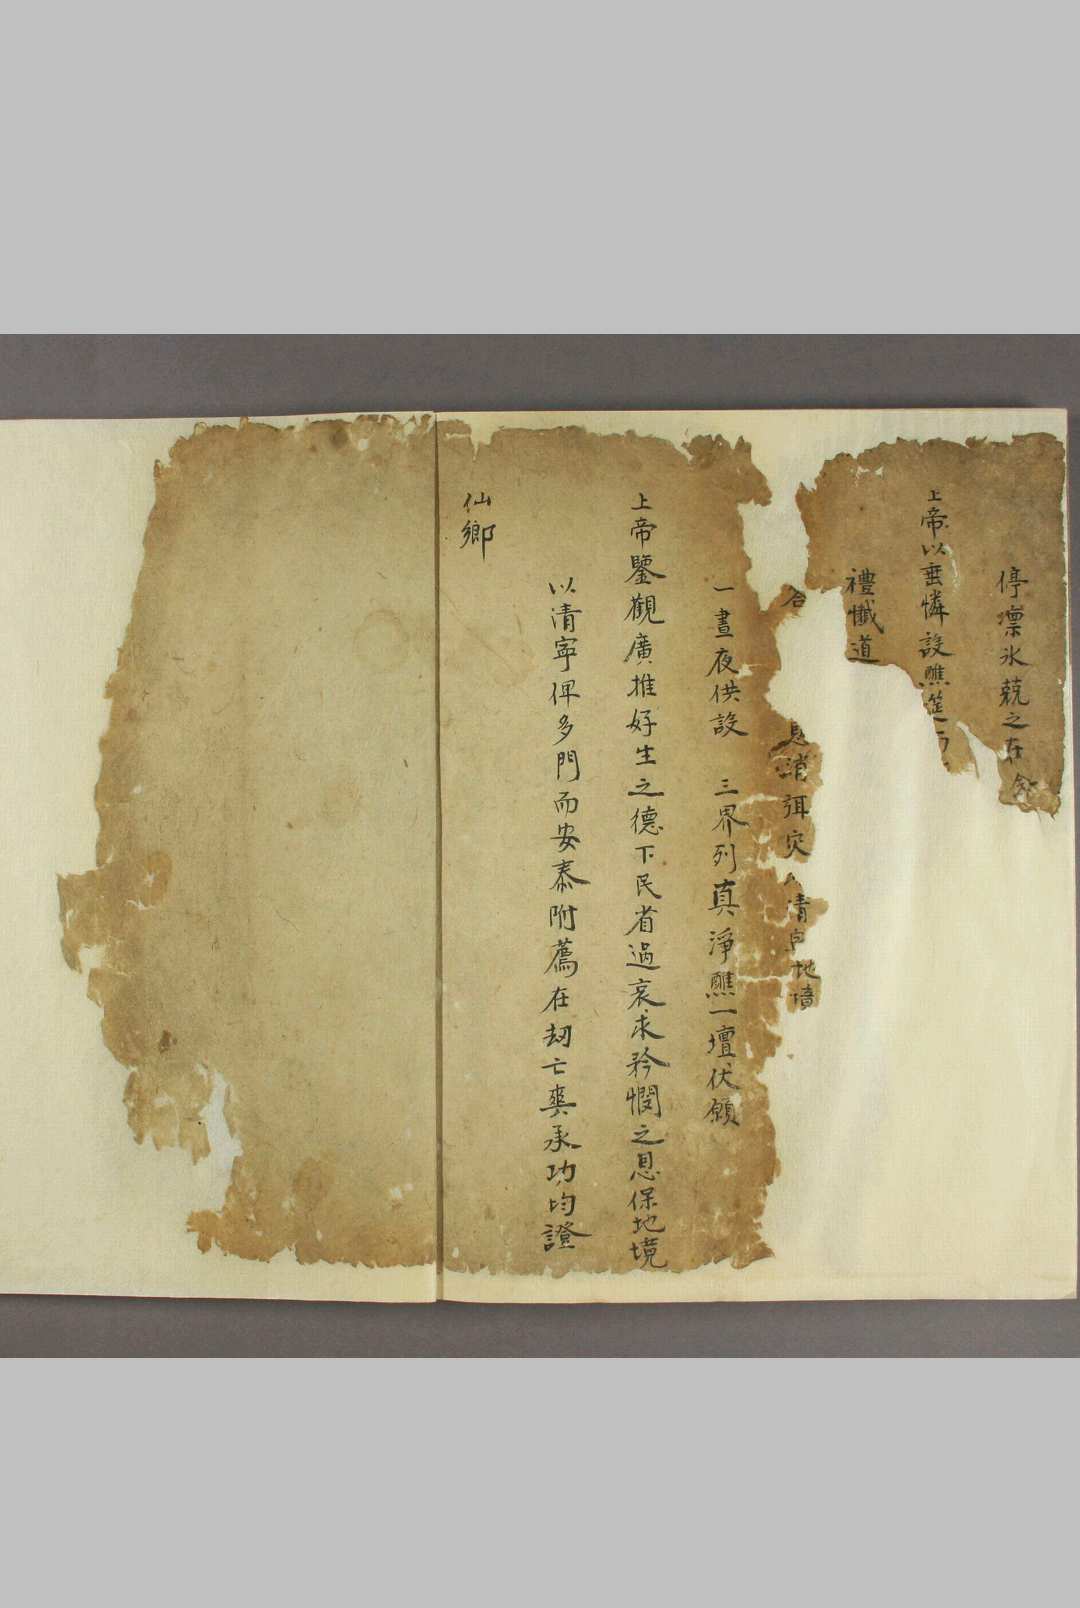 停凛氷兢之在念
上帝以垂憐設醮筵而
禮懺道
合
息消弭災 清 地境
一晝夜供設 三界列真淨醮一壇伏願
上帝鑒觀廣推好生之德下民省過哀求矜憫之恩保地境
以清寧俾多門而安泰附薦在刼亡䰟承功均證
仙鄉